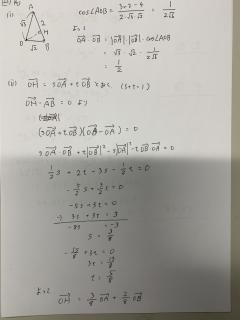 (i)
cos∠AOB = 3+2-4 / 2·√3·√2 = 1 / 2√6
A
√3
2
H
O
√2
B
より
OA·OB = |OA|·|OB|·cos∠AOB
= √3·√2·1/2√6
= 1/2
(ii) OH = sOA + tOB (s+t=1)
OH·AB = 0 より
(sOA + tOB)(OB - OA) = 0
sOA·OB + t|OB|² - s|OA|² - tOB·OA = 0
1/2 s + 2t - 3s - 1/2 t = 0
-5/2 s + 3/2 t = 0
-5s + 3t = 0
3s + 3t = 3
-8s = -3
s = 3/8
-15/8 + 3t = 0
3t = 15/8
t = 5/8
OH = 3/8 OA + 5/8 OB